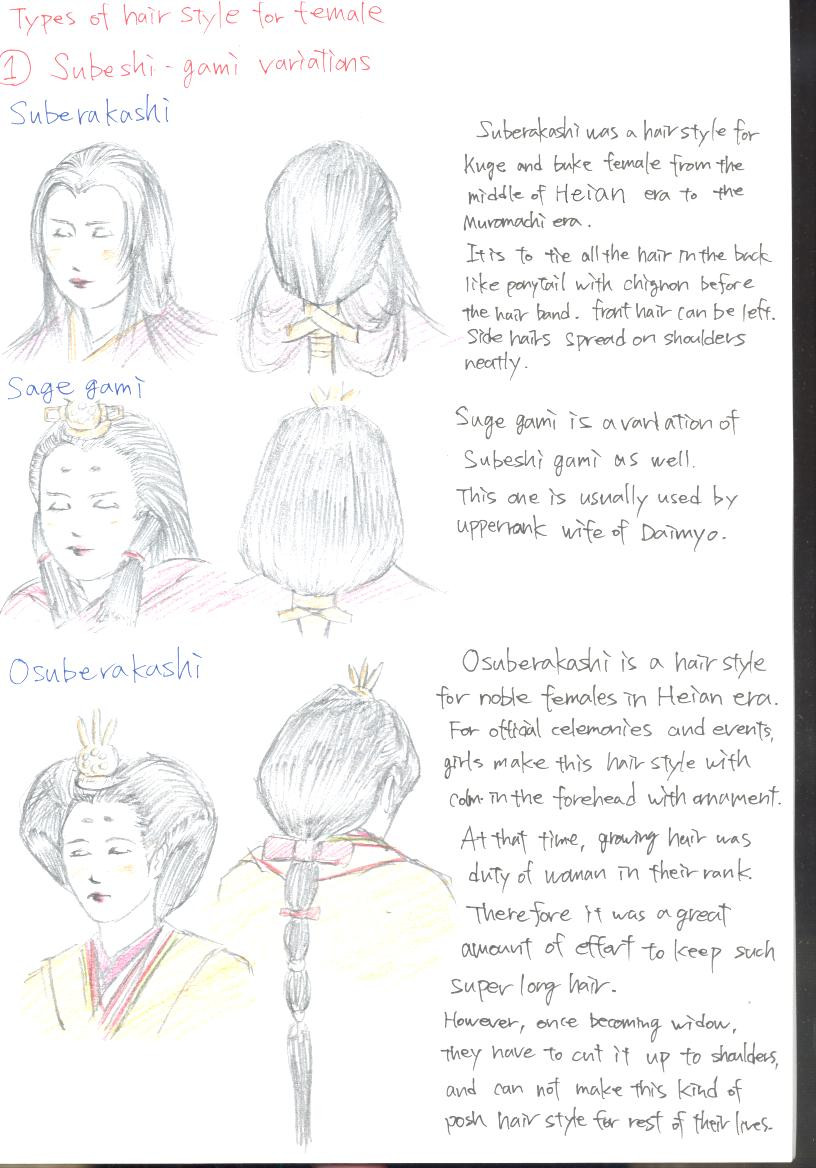 Types of hair style for female
① Subeshi-gami variations
Suberakashi
Suberakashi was a hairstyle for
Kuge and buke female from the
middle of Heian era to the
Muromachi era.
It is to tie all the hair in the back
like ponytail with chignon before
the hair band. front hair can be left.
Side hairs spread on shoulders
neatly.
Sage gami
Suge gami is a variation of
Subeshi gami as well.
This one is usually used by
upperrank wife of Daimyo.
Osuberakashi
Osuberakashi is a hair style
for noble females in Heian era.
For official celemonies and events,
girls make this hair style with
colm. in the forehead with ornament.
At that time, growing hair was
duty of woman in their rank.
Therefore it was a great
amount of effort to keep such
super long hair.
However, once becoming widow,
they have to cut it up to shoulders,
and can not make this kind of
posh hair style for rest of their lives.